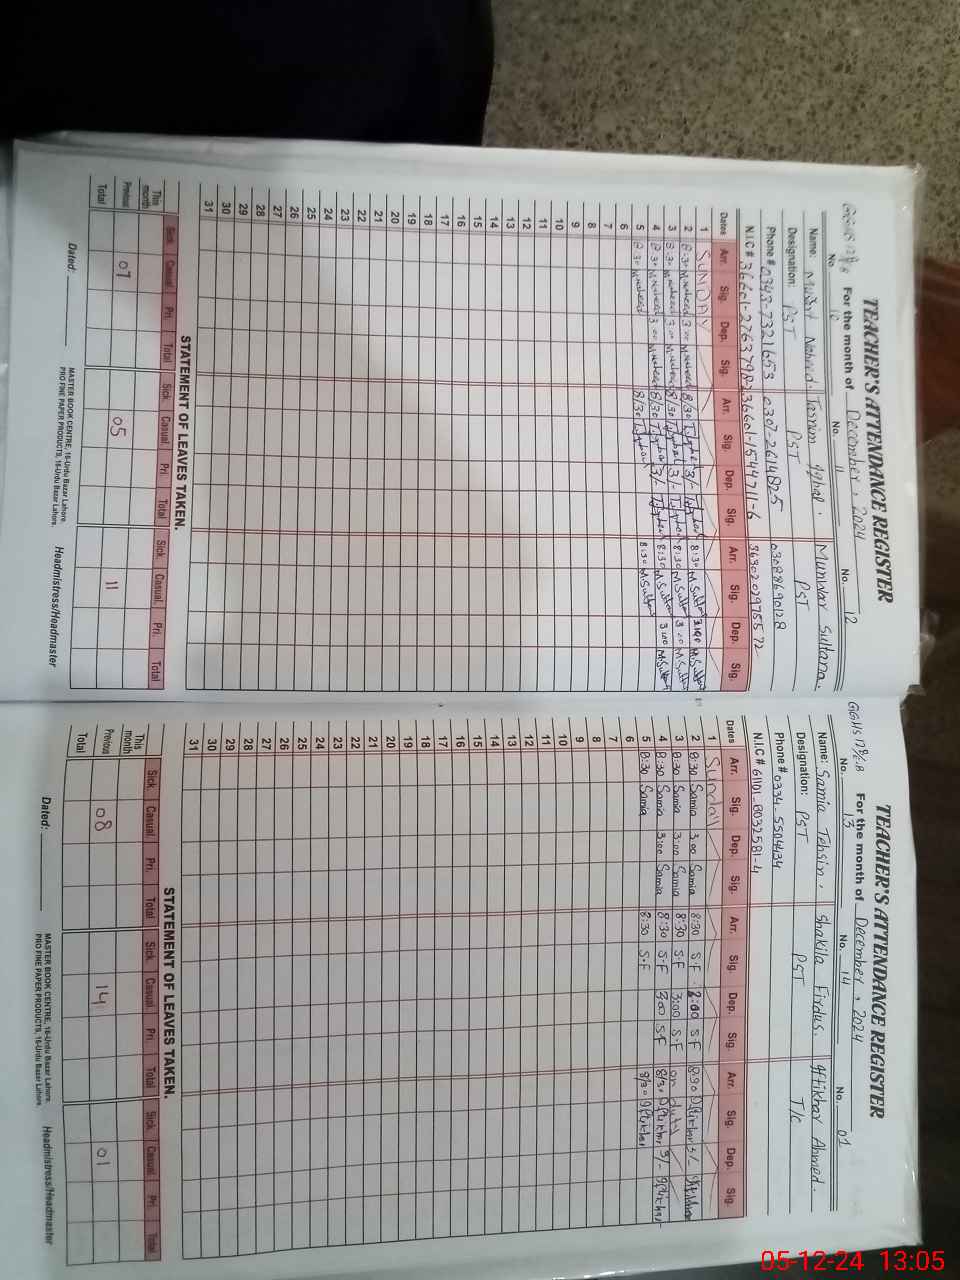 TEACHER'S ATTENDANCE REGISTER
For the month of December, 2024
No. 10 No. 11 No. 12
Name: Naheed. Tasnim Iqbal. Munwar Sultana.
Designation: PST PST PST
Phone # 0343-7321653 0307-2614825 03088690128
N.I.C #
Dates Arr. Sig. Dep. Sig. Arr. Sig. Dep. Sig. Arr. Sig. Dep. Sig.
1 SUNDAY
2 8:30 3:00 8/30 3/- 8:30 M.Sultana 3:00 M.Sultana
3 8:30 3:00 8/30 3/- 8:30 M.Sultana 3:00 M.Sultana
4 8:30 3:00 8/30 3/- 8:30 M.Sultana 3:00 M.Sultana
5 8:30 8/30 8:30 M.Sultana
6
7
8
9
10
11
12
13
14
15
16
17
18
19
20
21
22
23
24
25
26
27
28
29
30
31
STATEMENT OF LEAVES TAKEN.
Sick. Casual. Pri. Total Sick. Casual. Pri. Total Sick. Casual. Pri. Total
This month
Previous 07 05 11
Total
Dated:
MASTER BOOK CENTRE, 16-Urdu Bazar Lahore.
PRO FINE PAPER PRODUCTS, 16-Urdu Bazar Lahore.
Headmistress/Headmaster
TEACHER'S ATTENDANCE REGISTER
For the month of December, 2024
No. 13 No. 14 No. 01
Name: Samia Tehsin. Shakila Firdus. Iftikhar Ahmed.
Designation: PST PST T/c
Phone # 0334-5504434
N.I.C # 61101-8032581-4
Dates Arr. Sig. Dep. Sig. Arr. Sig. Dep. Sig. Arr. Sig. Dep. Sig.
1 Sunday
2 8:30 Samia 3:00 Samia 8:30 S.F 3:00 S.F 8:30 Iftikhar 3/- Iftikhar
3 8:30 Samia 3:00 Samia 8:30 S.F 3:00 S.F on duty
4 8:30 Samia 3:00 Samia 8:30 S.F 3:00 S.F 8/30 Iftikhar 3/- Iftikhar
5 8:30 Samia 8:30 S.F 8/30 Iftikhar
6
7
8
9
10
11
12
13
14
15
16
17
18
19
20
21
22
23
24
25
26
27
28
29
30
31
STATEMENT OF LEAVES TAKEN.
Sick. Casual. Pri. Total Sick. Casual. Pri. Total Sick. Casual. Pri. Total
This month
Previous 08 14 01
Total
Dated:
MASTER BOOK CENTRE, 16-Urdu Bazar Lahore.
PRO FINE PAPER PRODUCTS, 16-Urdu Bazar Lahore.
Headmistress/Headmaster
05-12-24 13:05